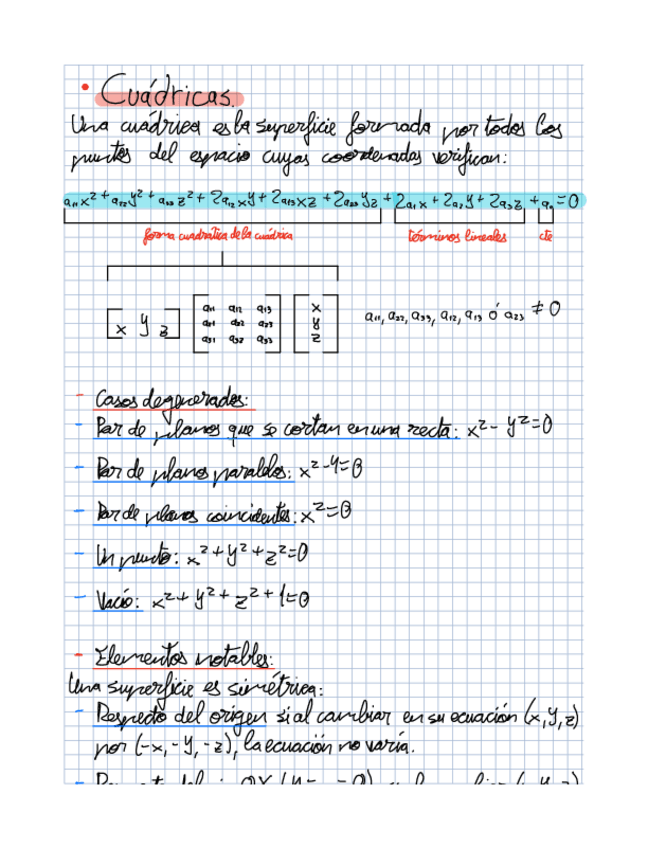 • Cuádricas.
Una cuádrica es la superficie formada por todos los
puntos del espacio cuyas coordenadas verifican:
a₁₁x² + a₂₂y² + a₃₃z² + 2a₁₂xy + 2a₁₃xz + 2a₂₃yz + 2a₁x + 2a₂y + 2a₃z + a₀ = 0
forma cuadrática de la cuádrica términos lineales cte
[x y z] [a₁₁ a₁₂ a₁₃
a₂₁ a₂₂ a₂₃
a₃₁ a₃₂ a₃₃] [x
y
z] a₁₁, a₂₂, a₃₃, a₁₂, a₁₃ ó a₂₃ ≠ 0
- Casos degenerados:
- Par de planos que se cortan en una recta: x² - y² = 0
- Par de planos paralelos: x² - 4 = 0
- Par de planos coincidentes: x² = 0
- Un punto: x² + y² + z² = 0
- Vació: x² + y² + z² + 1 = 0
- Elementos notables:
Una superficie es simétrica:
- Respecto del origen si al cambiar en su ecuación (x, y, z)
por (-x, -y, -z), la ecuación no varía.